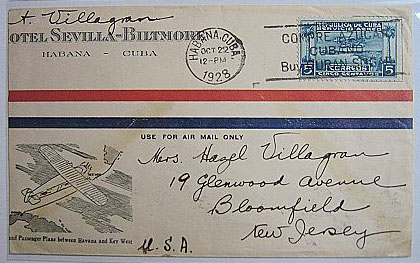 A. Villagran
HOTEL SEVILLA-BILTMORE
HABANA - CUBA
HABANA, CUBA
OCT 22
12-PM
1928
REPUBLICA DE CUBA
SERVICIO AEREO
COMPRE AZUCAR
CUBANO
Buy CUBAN SUGAR
5 CORREOS 5
CINCO CENTAVOS
USE FOR AIR MAIL ONLY
Mrs. Hazel Villagran
19 Glenwood Avenue
Bloomfield
New Jersey
and Passenger Plane between Havana and Key West
U.S.A.